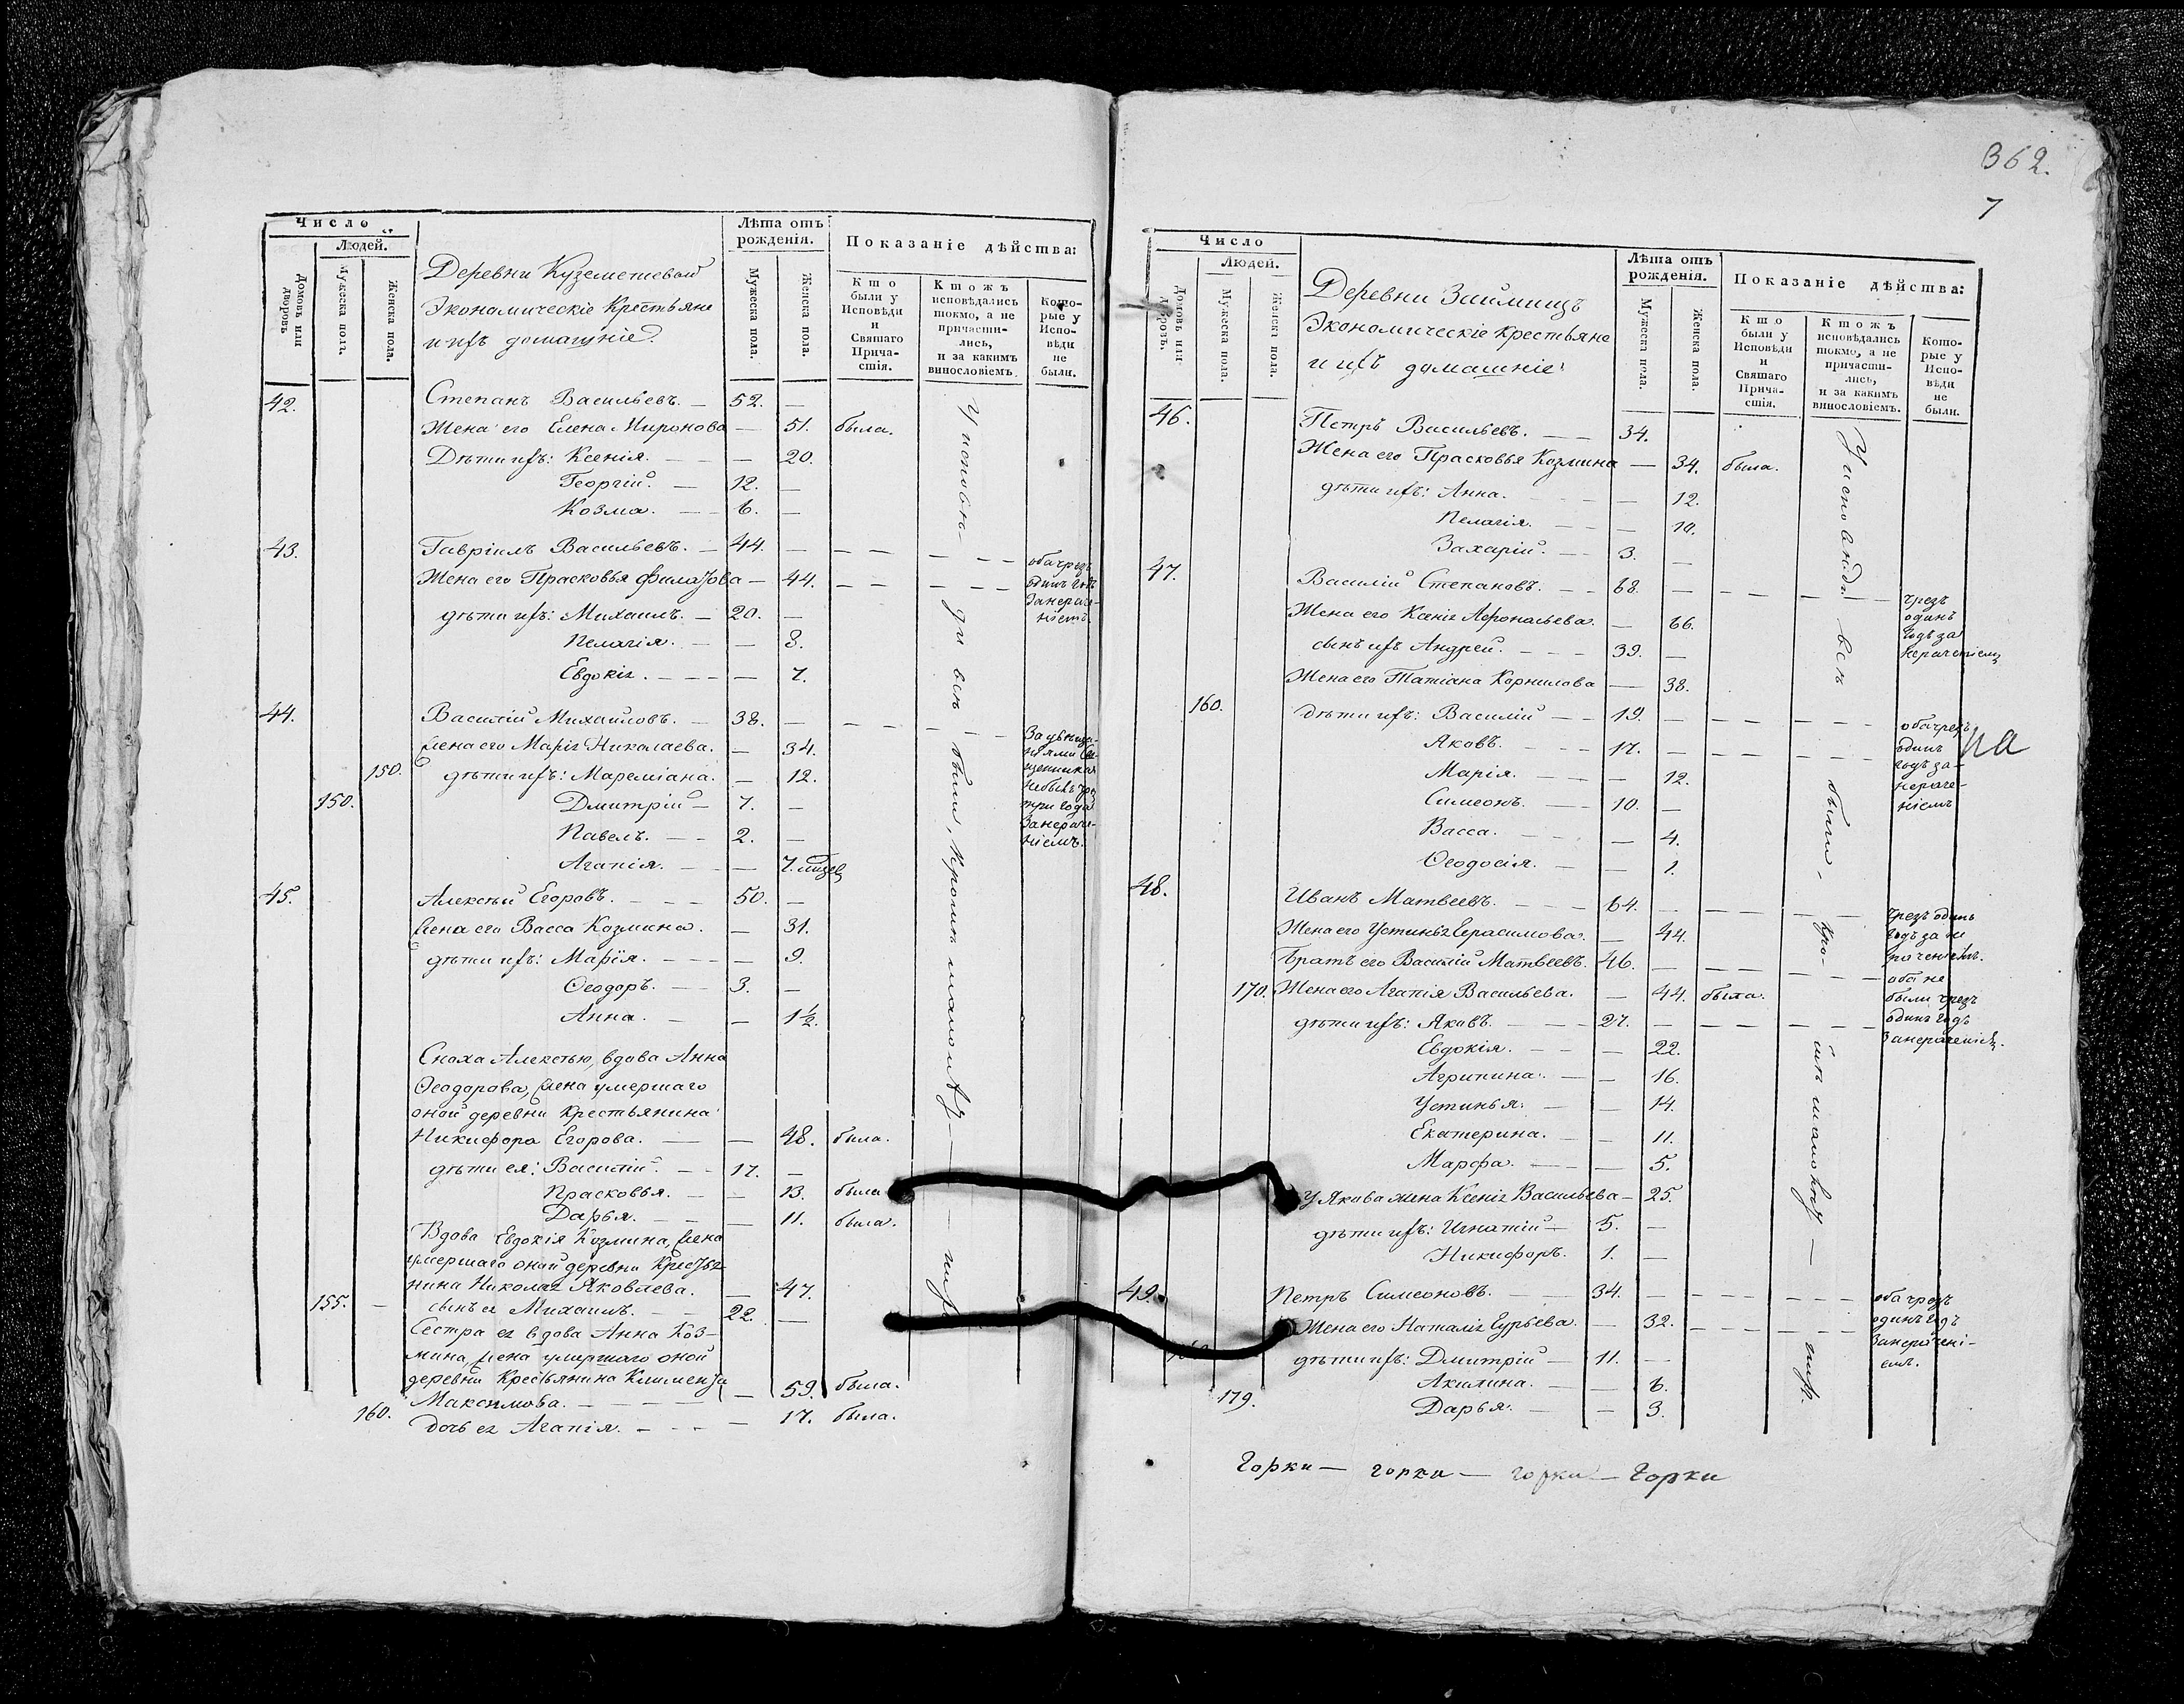 362.
7
Число
Людей.
Домовъ или дворовъ.
Мужеска полъ.
Женска пола.
Деревни Куземетевой
Экономическіе Крестьяне
и ихъ домашніе.
Лѣта отъ рожденія.
Мужеска пола.
Женска пола.
Показаніе дѣйства:
Кто были у Исповѣди и Святаго Причастія.
Ктожъ исповѣдались токмо, а не причастились, и за какимъ винословіемъ.
Которые у Исповѣди не были.
42. Степанъ Васильевъ. — 52. —
Жена его Елена Миронова — 51. была.
Дѣти ихъ: Ксенія. — — 20.
Георгій. — 12. —
Козма. — — 6. —
43. Гавріилъ Васильевъ. — 44. — — — — —
Жена его Прасковья Филатова — 44. — — — —
оба чрезъ
одинъ годъ
за нераче-
ніемъ.
дѣти ихъ: Михаилъ. — 20. —
Пелагія. — — 8.
Евдокія. — — — 7.
44. Василій Михайловъ. — 38. — — — — —
Жена его Марія Николаева. — 34.
150. дѣти ихъ: Мареміана. — 12.
150. Дмитрій — 7. —
Павелъ. — — 2. —
Агапія. — — 7. мцев
не былъ чрез
три года
за нераче-
ніемъ.
45. Алексѣй Егоровъ. — — — 50. —
Жена его Васса Козмина. — 31.
дѣти ихъ: Марія. — — — 9.
Ѳеодоръ. — — 3. —
Анна. — — 1 1/2.
Сноха Алексѣю, вдова Анна
Ѳеодорова, жена умершаго
оной деревни крестьянина
Никифора Егорова. — — 48. была.
дѣти ея: Василій. — — 17. —
Прасковья. — — 13. была
Дарья. — — 11. была.
Вдова Евдокія Козмина, жена
умершаго оной деревни Крестья-
нина Николая Яковлева. — 47.
155. — сынъ ея Михаилъ. — — 22. —
Сестра ея вдова Анна Коз-
мина, жена умершаго оной
деревни Крестьянина Климента
Максимова. — — — — 59. была.
160. дочь ея Агапія. — — — 17. была.
У исповѣ-
ди всѣ были, кромѣ
Число
Людей.
Домовъ или дворовъ.
Мужеска пола.
Женска пола.
Деревни Займищъ
Экономическіе крестьяне
и ихъ домашніе
Лѣта отъ рожденія.
Мужеска пола.
Женска пола.
Показаніе дѣйства:
Кто были у Исповѣди и Святаго Причастія.
Ктожъ исповѣдались токмо, а не причастились, и за какимъ винословіемъ.
Которые у Исповѣди не были.
46. Петръ Васильевъ. — — 34.
Жена его Прасковья Козмина — 34. была.
дѣти ихъ: Анна. — — — 12.
Пелагія. — — — 10.
Захарій. — — 3. —
47. Василій Степановъ. — — 68. — — — — —
чрезъ
одинъ
годъ за
нераченіемъ
Жена его Ксенія Аѳонасьева. — 66.
сынъ ихъ Андрей. — — — 39. —
Жена его Татіана Корнилова — 38.
160. дѣти ихъ: Василій — — 19. — — — — —
Яковъ. — — — 17. — — — — —
Марія. — — — 12.
оба чрезъ
одинъ
годъ за-
нераче-
ніемъ
на
Симеонъ. — — 10. —
Васса. — — — 4.
Ѳеодосія. — — 1.
48. Иванъ Матвеевъ. — — — 64. — — — — —
чрезъ одинъ
годъ за не
раченіемъ.
Жена его Устинья Герасимова. — 44.
Братъ его Василій Матвеевъ. 46. — — — — —
170. Жена его Агапія Васильева. — 44. была.
дѣти ихъ: Яковъ. — — — 27. — — — — —
оба не
были чрезъ
одинъ годъ
за нераченіемъ.
Евдокія. — — — 22.
Агрипина. — — 16.
Устинья. — — 14.
Екатерина. — — 11.
Марѳа. — — — 5.
У Якова жена Ксенія Васильева — 25.
дѣти ихъ: Игнатій — 5. —
Никифоръ. 1. —
49. Петръ Симеоновъ. — — 34. — — — — —
Жена его Наталія Гурьева. — 32. — — — —
оба чрезъ
одинъ годъ
за нерачені-
емъ.
дѣти ихъ: Дмитрій — 11. —
Акилина. — — 6.
179. Дарья. — — 3.
всѣ
были,
кро-
Горки — горки — горки — Горки